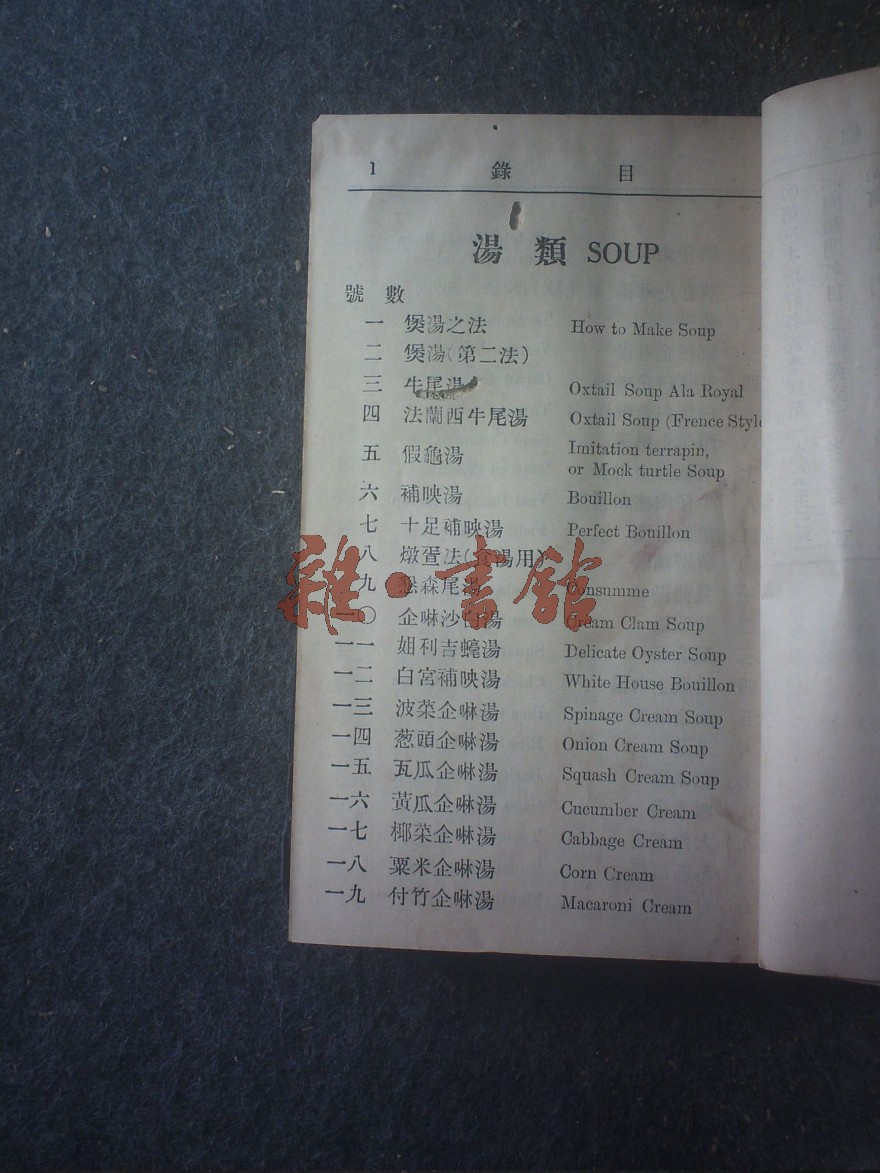 1 錄 目
湯 類 SOUP
號 數
一 煲湯之法 How to Make Soup
二 煲湯(第二法)
三 牛尾湯 Oxtail Soup Ala Royal
四 法蘭西牛尾湯 Oxtail Soup (Frence Style
五 假龜湯 Imitation terrapin,
or Mock turtle Soup
六 補映湯 Bouillon
七 十足補映湯 Perfect Bouillon
八 燉疍法(食湯用)
九 懇森尾湯 Consumme
一〇 企啉沙白湯 Cream Clam Soup
一一 姐利吉蠔湯 Delicate Oyster Soup
一二 白宮補映湯 White House Bouillon
一三 波菜企啉湯 Spinage Cream Soup
一四 葱頭企啉湯 Onion Cream Soup
一五 瓦瓜企啉湯 Squash Cream Soup
一六 黃瓜企啉湯 Cucumber Cream
一七 椰菜企啉湯 Cabbage Cream
一八 粟米企啉湯 Corn Cream
一九 付竹企啉湯 Macaroni Cream
雜·書館